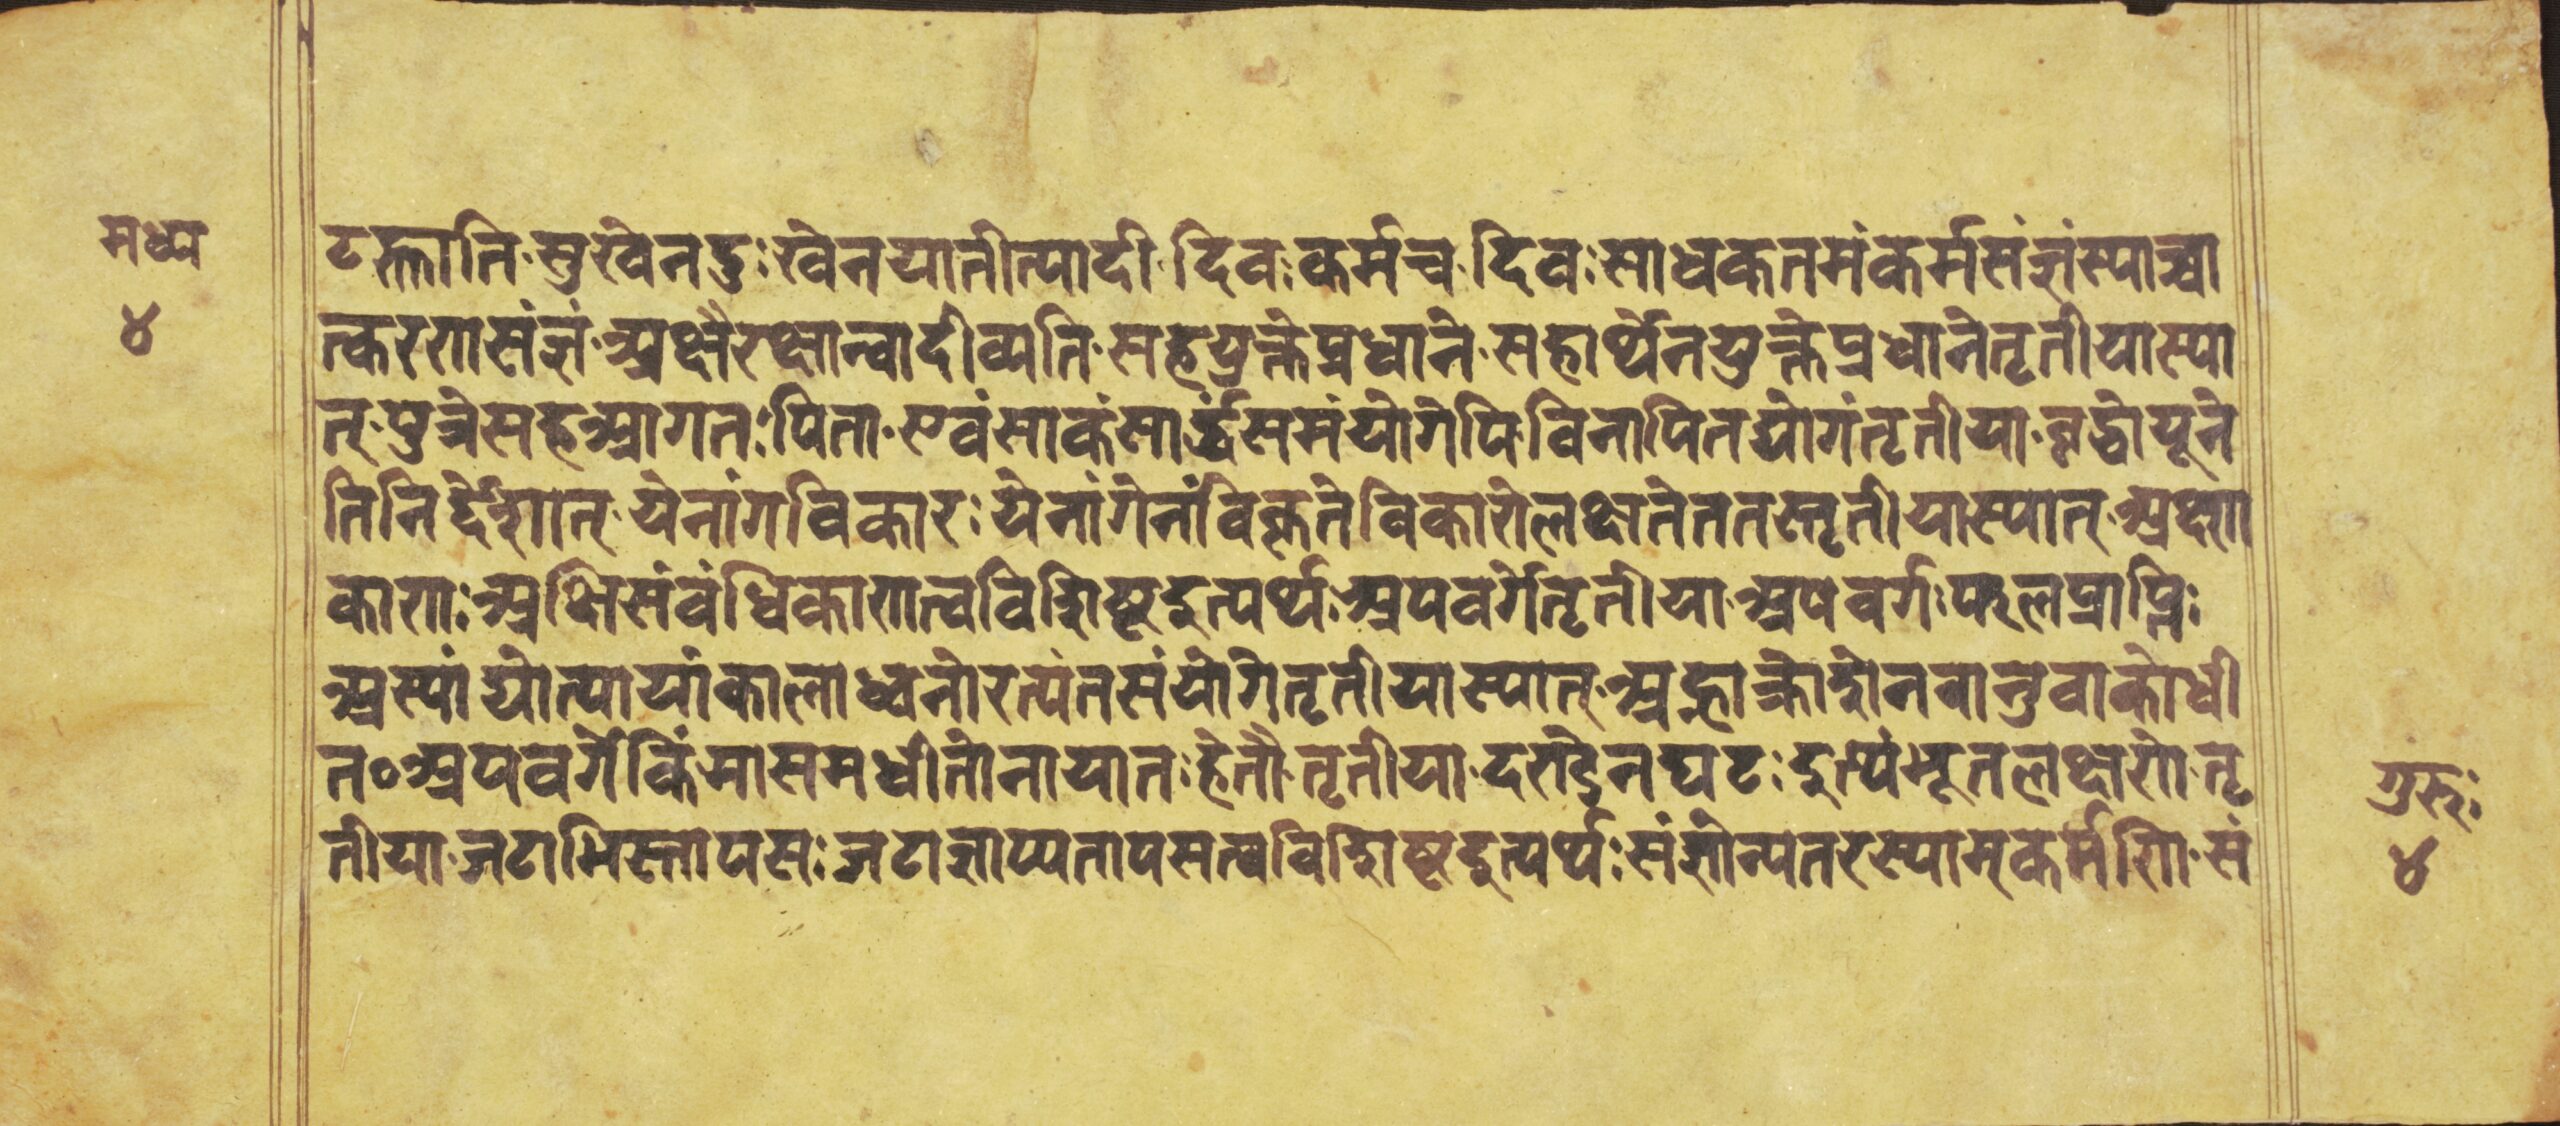 मध्य
४
टक्रीणाति सुखेन दुःखेन यातीत्यादी दिवः कर्म च दिवः साधकतमं कर्मसंज्ञं स्याच्चा
त्करणसंज्ञं अक्षैरक्षान्वा दीव्यति सहयुक्तेप्रधाने सहार्थेन युक्तेप्रधाने तृतीया स्या
त् पुत्रेसह आगतः पिता एवं साकं सार्द्धं समं योगेपि विनापि तद्योगं तृतीया वृद्धो यूने
तिनिर्द्देशात् येनांगविकारः येनांगेनं विकृतेन विकारो लक्ष्यते ततस्तृतीया स्यात् अक्ष्णा
काणः अक्षिसंबंधिकाणत्वविशिष्ट इत्यर्थः अपवर्गे तृतीया अपवर्गः फलप्राप्तिः
अस्यां द्योत्यायां कालाध्वनोरत्यंतसंयोगे तृतीया स्यात् अह्नाक्रोशेन वानुवाकोधी
त० अपवर्गे किं मासमधीतो नायातः हेतौ तृतीया दण्डेन घटः इत्थंभूतलक्षणे तृ
तीया जटाभिस्तापसः जटाज्ञाप्यतापसत्वविशिष्ट इत्यर्थः संज्ञोन्यतरस्याम् कर्मणि सं
गुरुः
४